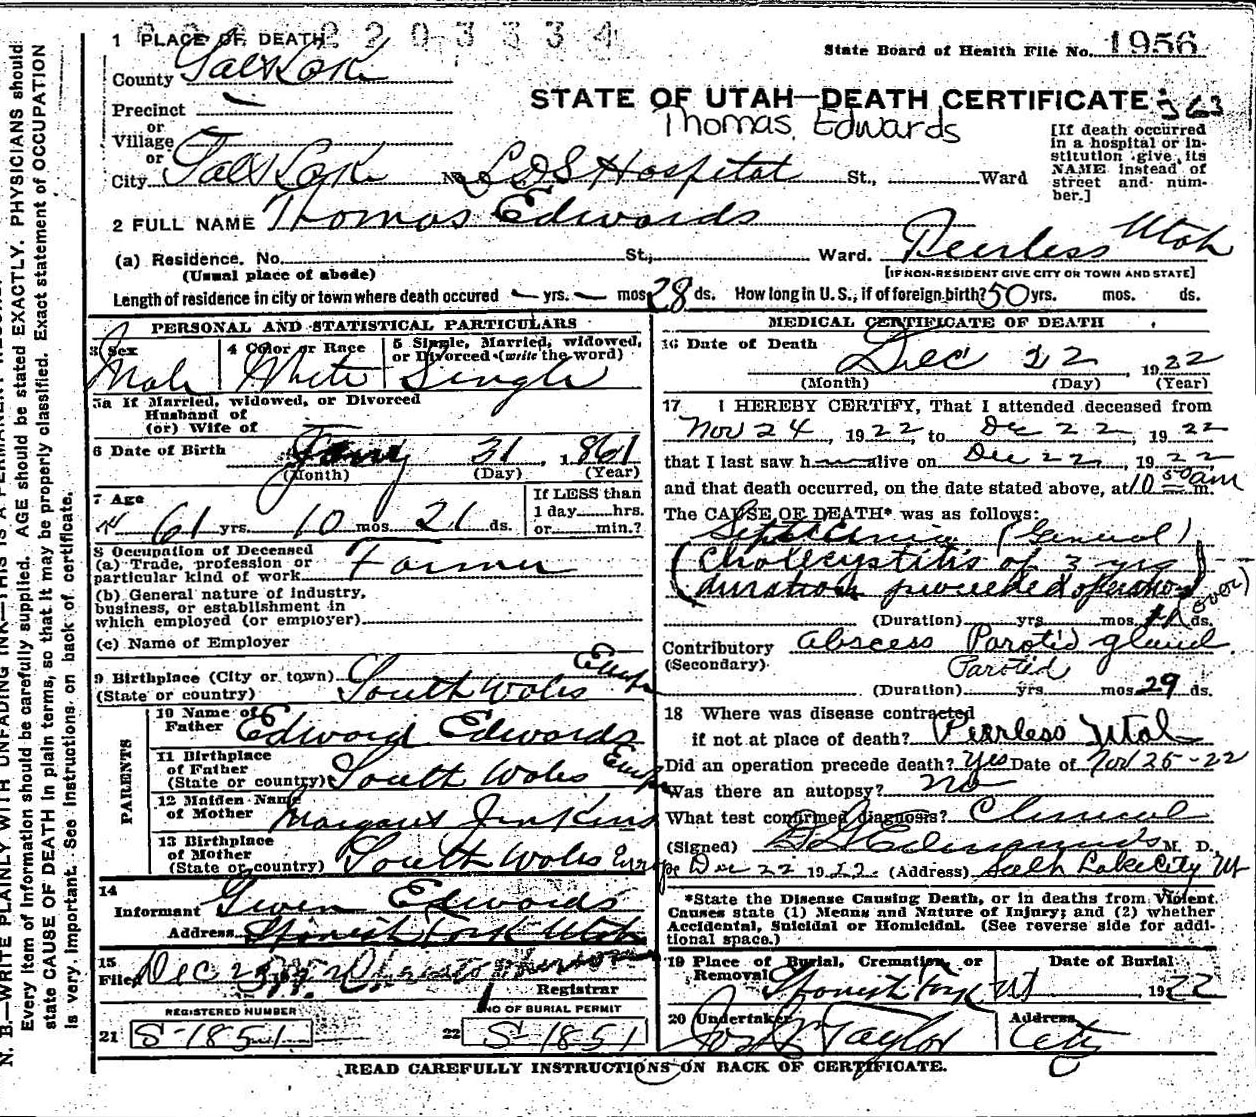 1 PLACE OF DEATH
State Board of Health File No. 1956
County Salt Lake
Precinct
or
Village
or
STATE OF UTAH—DEATH CERTIFICATE
Thomas Edwards
[If death occurred
in a hospital or in-
stitution give its
NAME instead of
street and num-
ber.]
City Salt Lake No. LDS Hospital St., Ward
2 FULL NAME Thomas Edwards
(a) Residence. No. St., Ward. Peerless Utah
(Usual place of abode) [IF NON-RESIDENT GIVE CITY OR TOWN AND STATE]
Length of residence in city or town where death occured — yrs. — mos 28 ds. How long in U.S., if of foreign birth? 50 yrs. mos. ds.
PERSONAL AND STATISTICAL PARTICULARS
3 Sex
Male
4 Color or Race
White
5 Single, Married, widowed,
or Divorced (write the word)
Single
5a If Married, widowed, or Divorced
Husband of
(or) Wife of
6 Date of Birth 31, 1861
(Month) (Day) (Year)
7 Age
61 yrs. 10 mos 21 ds.
If LESS than
1 day hrs.
or min.?
8 Occupation of Deceased
(a) Trade, profession or
particular kind of work Farmer
(b) General nature of industry,
business, or establishment in
which employed (or employer)
(c) Name of Employer
9 Birthplace (City or town)
(State or country) South Wales Europe
PARENTS
10 Name of
Father Edward Edwards
11 Birthplace
of Father
(State or country) South Wales Europe
12 Maiden Name
of Mother Margaret Jenkins
13 Birthplace
of Mother
(State or country) South Wales Europe
14
Informant Gwen Edwards
Address Spanish Fork Utah
15
Filed Dec 23
Registrar
REGISTERED NUMBER
21 S-1851
NO OF BURIAL PERMIT
22 S-1851
MEDICAL CERTIFICATE OF DEATH
16 Date of Death
Dec 22 1922
(Month) (Day) (Year)
17 I HEREBY CERTIFY, That I attended deceased from
Nov 24, 1922, to Dec 22, 1922
that I last saw h alive on Dec 22, 1922
and that death occurred, on the date stated above, at 10 50 am m.
The CAUSE OF DEATH* was as follows:
Septicemia (General)
(Cholecystitis of 3 yrs
duration preceded operation) (over)
(Duration) yrs mos ds.
Contributory abscess Parotid gland.
(Secondary) Parotid
(Duration) yrs mos 29 ds.
18 Where was disease contracted
if not at place of death? Peerless Utah
Did an operation precede death? Yes Date of Nov 25-22
Was there an autopsy? no
What test confirmed diagnosis? Clinical
(Signed) M. D.
Dec 22 1922. (Address) Salt Lake City Ut
*State the Disease Causing Death, or in deaths from Violent
Causes state (1) Means and Nature of Injury; and (2) whether
Accidental, Suicidal or Homicidal. (See reverse side for addi-
tional space.)
19 Place of Burial, Cremation, or
Removal Spanish Fork Ut
Date of Burial
1922
20 Undertaker
Jos Wm Taylor
Address
City
READ CAREFULLY INSTRUCTIONS ON BACK OF CERTIFICATE.
N. B.—WRITE PLAINLY WITH UNFADING INK—THIS IS A PERMANENT
Every item of information should be carefully supplied. AGE should be stated EXACTLY. PHYSICIANS should
state CAUSE OF DEATH in plain terms, so that it may be properly classified. Exact statement of OCCUPATION
is very important. See instructions on back of certificate.